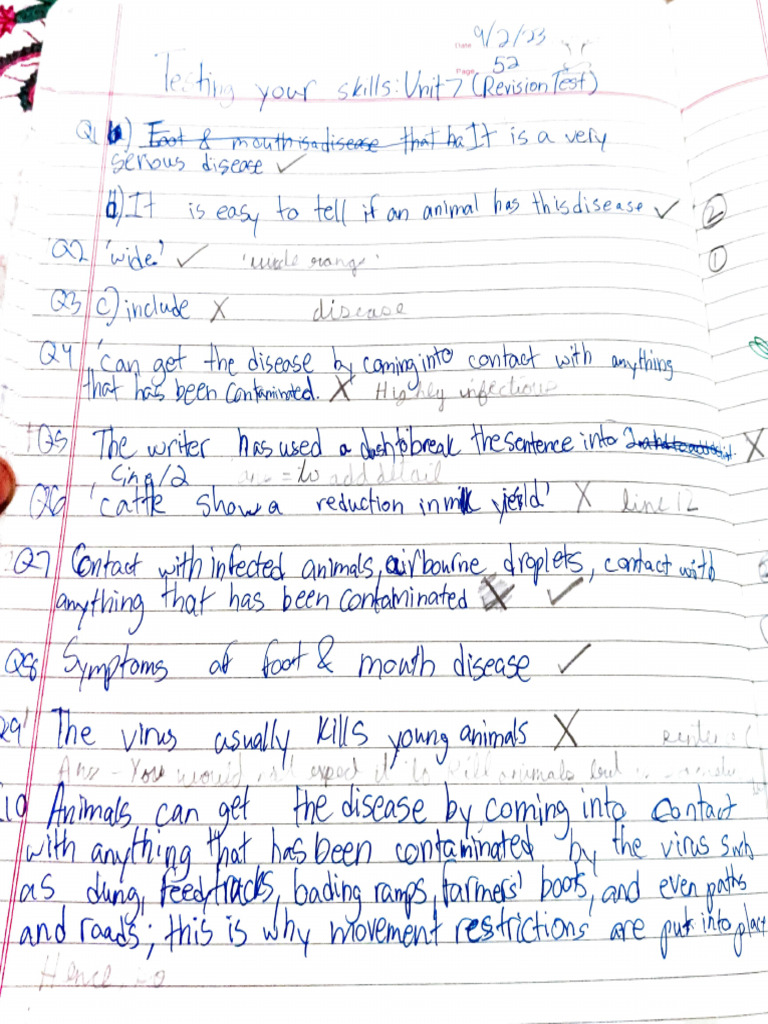 Date 9/2/23
Page 52
Testing your skills: Unit 7 (Revision Test)
Q1 b) Foot & mouth is a disease that ha It is a very
serious disease ✓
d) It is easy to tell if an animal has this disease ✓ 2
Q2 'wide' ✓ 'wide range' 1
Q3 c) include X disease
Q4 'can get the disease by coming into contact with anything
that has been contaminated. X Highly infectious
Q5 The writer has used a dash to break the sentence into X
to add detail
Q6 'cattle show a reduction in milk yield' X line 12
Q7 Contact with infected animals, airbourne droplets, contact with
anything that has been contaminated X ✓
Q8 Symptoms of foot & mouth disease ✓
Q9 'The virus usually kills young animals X
Ans - You would expect it to kill animals but
10 Animals can get the disease by coming into contact
with anything that has been contaminated by the virus such
as dung, feed, tracks, loading ramps, farmers' boots, and even paths
and roads; this is why movement restrictions are put into place
Hence